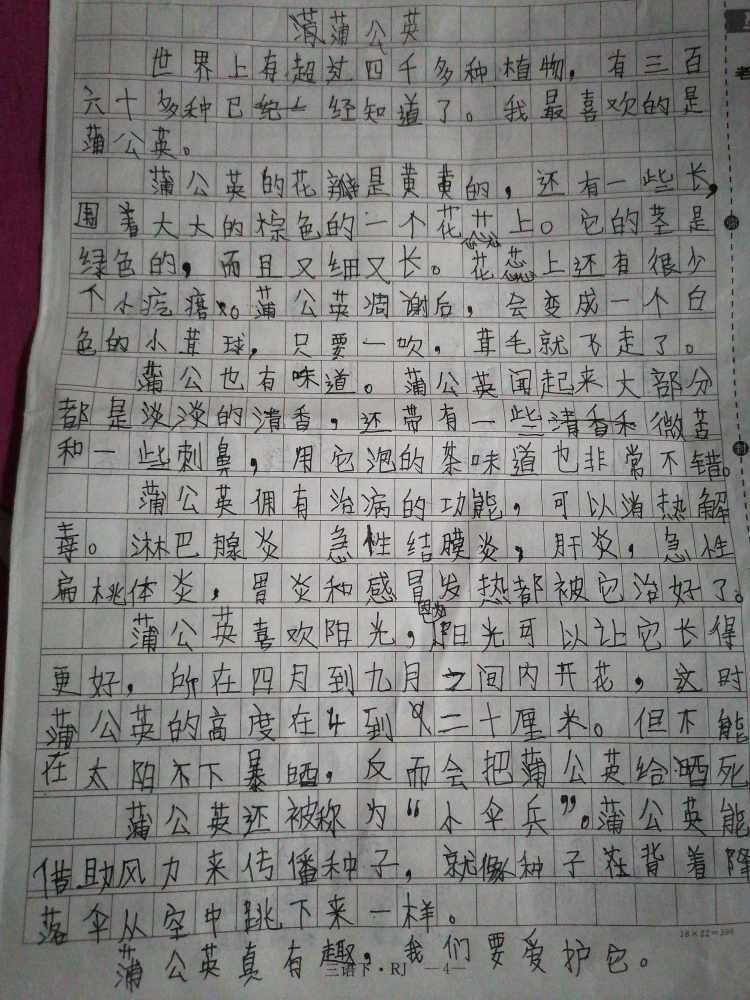 蒲公英
世界上有超过四千多种植物，有三百
六十多种已经知道了。我最喜欢的是
蒲公英。
蒲公英的花瓣是黄黄的，还有一些长，
围着大大的棕色的一个花蕊上。它的茎是
绿色的，而且又细又长。花蕊上还有很少
个小疙瘩。蒲公英凋谢后，会变成一个白
色的小茸球，只要一吹，茸毛就飞走了。
蒲公也有味道。蒲公英闻起来大部分
都是淡淡的清香，还带有一些微苦
和一些刺鼻，用它泡的茶味道也非常不错。
蒲公英拥有治病的功能，可以消热解
毒。淋巴腺炎 急性结膜炎，肝炎，急性
扁桃体炎，胃炎和感冒发热都被它治好了。
蒲公英喜欢阳光，因为阳光可以让它长得
更好，所在四月到九月之间内开花，这时
蒲公英的高度在4到二十厘米。但不能
在太阳不下暴晒，反而会把蒲公英给晒死
蒲公英还被称为“小伞兵”。蒲公英能
借助风力来传播种子，就像种子在背着降
落伞从空中跳下来一样。
蒲公英真有趣，我们要爱护它。
三语下·RJ —4—
18×22=396